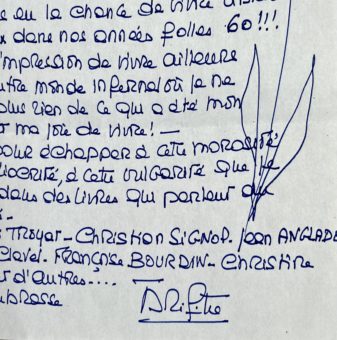 eu la chance de vivre
dans nos années folles 60!!!
impression de vivre ailleurs
utre monde infernal où je ne
plus rien de ce qui a été mon
ma joie de vivre! —
pour échapper à cette morosité
iocrité, à cette vulgarité que je
dans des livres qui parlent
Troyat - Christian SIGNOL. Jean ANGLADE
Clavel. Françoise BOURDIN - Christine
d'autres....
brasse